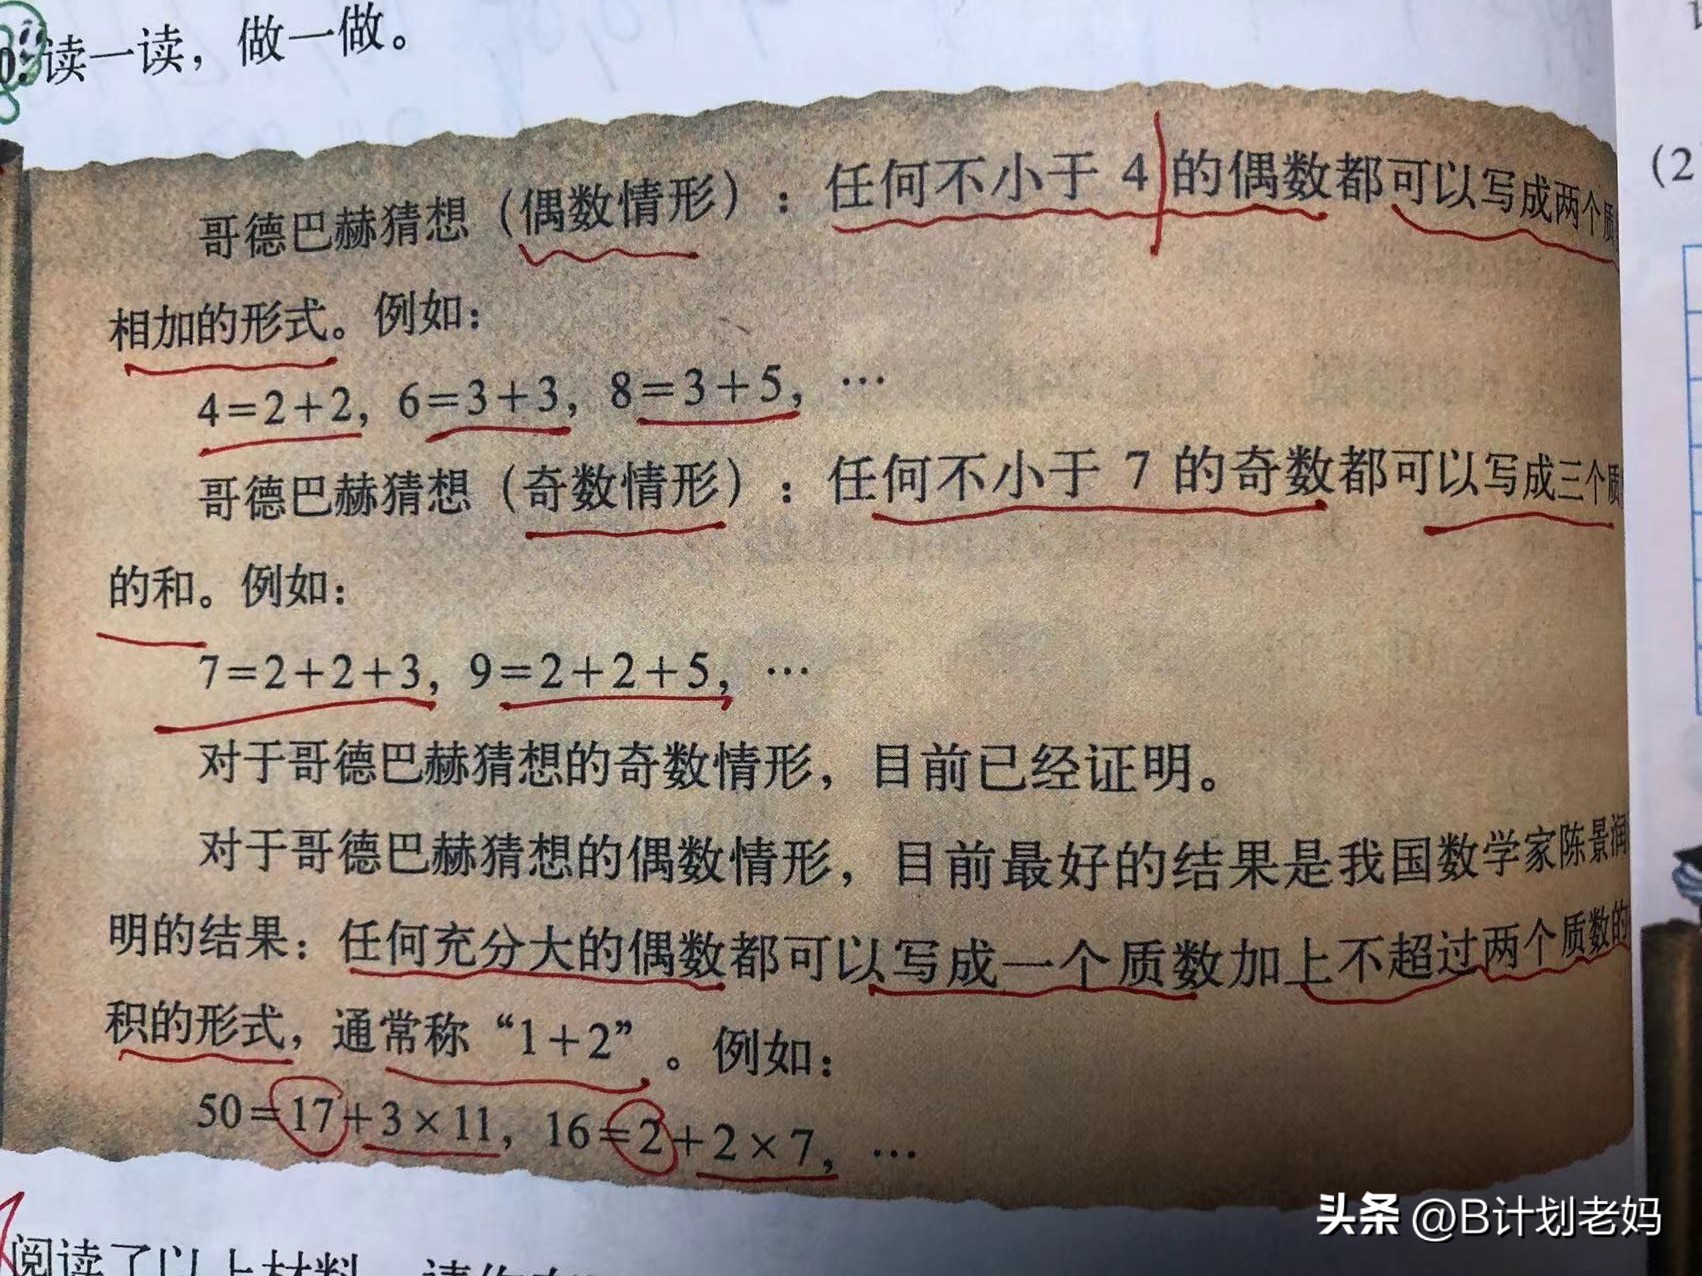 读一读，做一做。
哥德巴赫猜想（偶数情形）：任何不小于 4 的偶数都可以写成两个质
相加的形式。例如：
4=2+2，6=3+3，8=3+5，…
哥德巴赫猜想（奇数情形）：任何不小于 7 的奇数都可以写成三个质
的和。例如：
7=2+2+3，9=2+2+5，…
对于哥德巴赫猜想的奇数情形，目前已经证明。
对于哥德巴赫猜想的偶数情形，目前最好的结果是我国数学家陈景润
明的结果：任何充分大的偶数都可以写成一个质数加上不超过两个质数的
积的形式，通常称“1+2”。例如：
50=17+3×11，16=2+2×7，…
阅读了以上材料
(2
头条 @B计划老妈